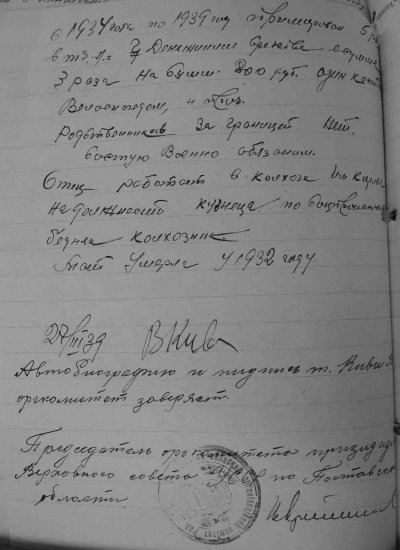 с 1934 года по 1939 год премирован 5 раз
в т.ч. 2 Денежными средства в сумме
3 раза на сумм. 800 руб. один
Велосипедом, и проч.
Родственников за границей нет.
состою Военно обязаним.
Отец работает в колхозе им Кирова
на должности кузнеца. по
бедняк колхозник
Мать Умерла У 1932 году
27/III 39
Автобиографию и подпись т. Кива
оргкомитет заверяет.
Председатель оргкомитета президиу
Верховного совета УССР по Полтавской
области.